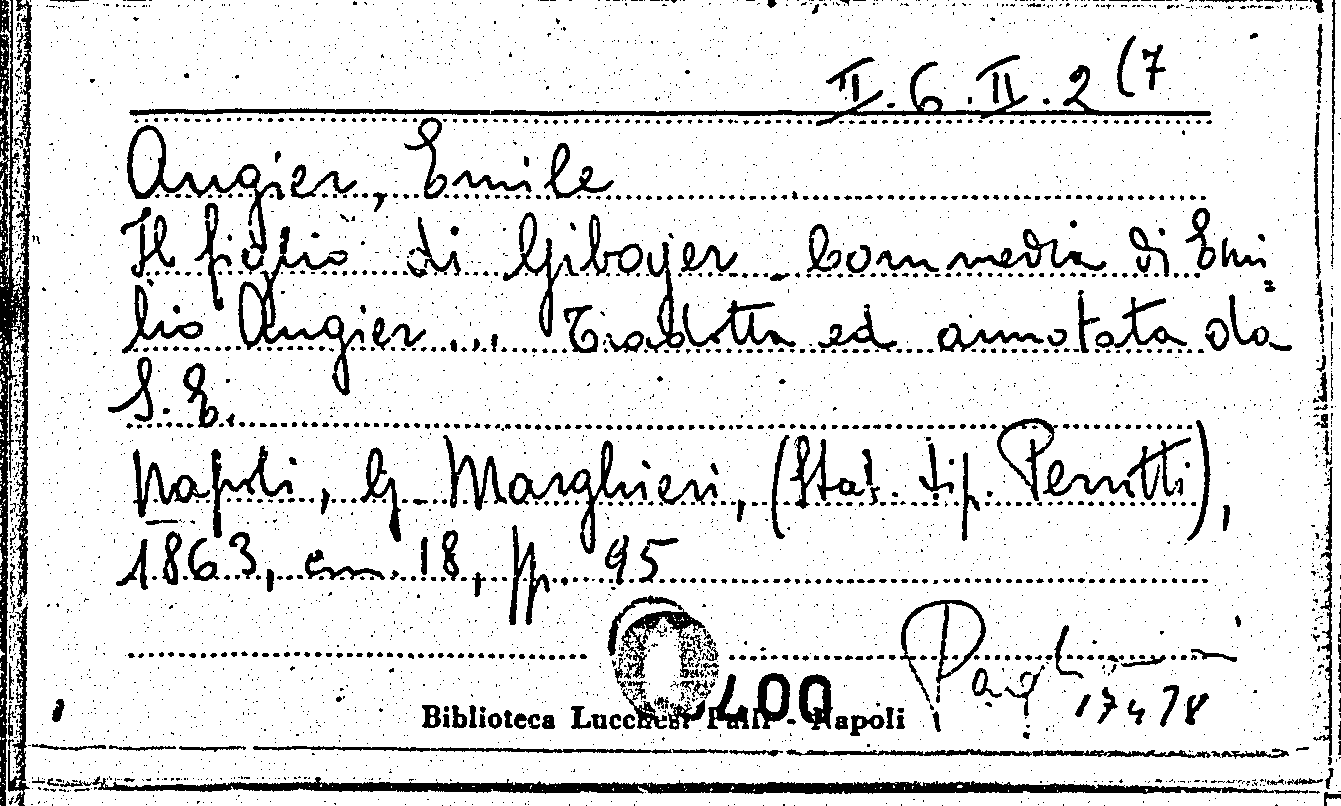 II.6.II.2(7
Augier, Emile
Il figlio di Giboyer - Commedia di Emi=
lio Augier ... Tradotta ed annotata da
S. E.
Napoli, G. Marghieri, (Stab. tip. Perrotti),
1863, cm. 18, pp. 95
400
17478
Biblioteca Lucchesi Palli - Napoli